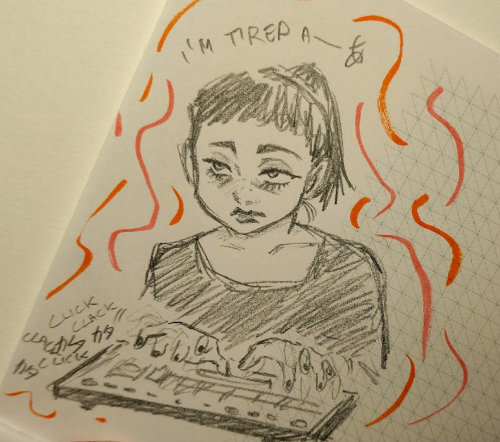 I'M TIRED A— あ
CLICK
CLACK!!
CLACK カタ カタ
カタ CLICK